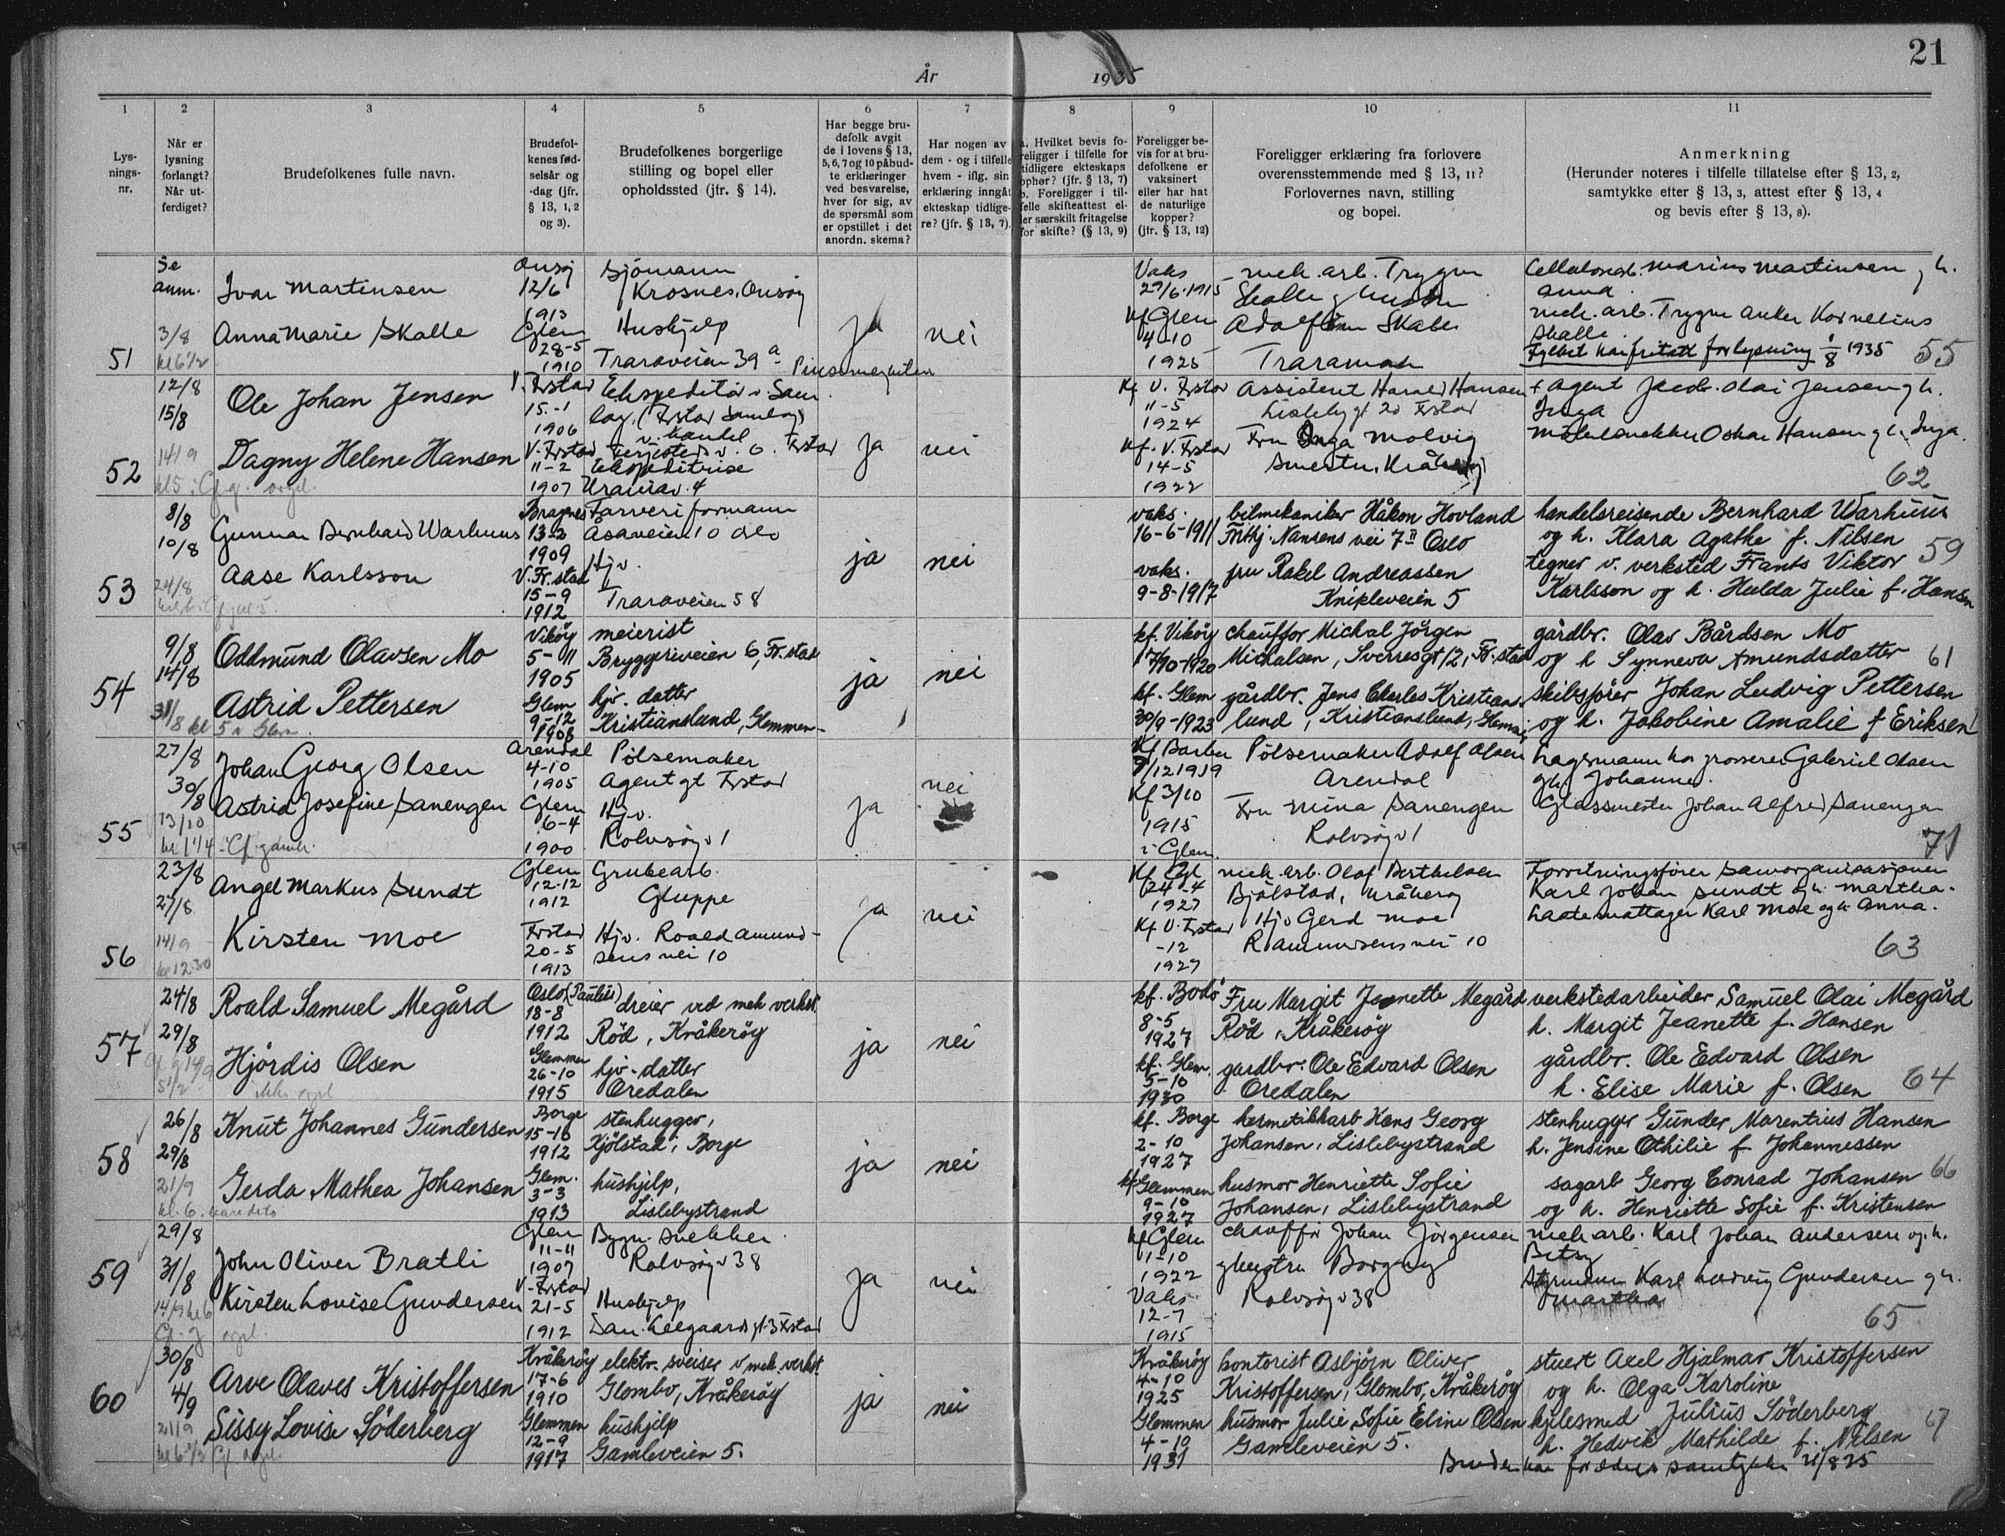 21
År 1935
1 2 3 4 5 6 7 8 9 10 11
Lys-
nings-
nr.
Når er
lysning
forlangt?
Når ut-
ferdiget?
Brudefolkenes fulle navn.
Brudefol-
kenes fød-
selsår og
-dag (jfr.
§ 13, 1, 2
og 3).
Brudefolkenes borgerlige
stilling og bopel eller
opholdssted (jfr. § 14).
Har begge bru-
defolk avgit
de i lovens § 13,
5, 6, 7 og 10 påbud-
te erklæringer
ved besvarelse,
hver for sig, av
de spørsmål som
er opstillet i det
anordn. skema?
Har nogen av
dem - og i tilfelle
hvem - iflg. sin
erklæring inngått
ekteskap tidlige-
re? (jfr. § 13, 7).
a. Hvilket bevis fo-
religger i tilfelle for
tidligere ekteskaps
ophør? (jfr. § 13, 7)
b. Foreligger i til-
felle skifteattest el-
ler særskilt fritagelse
for skifte? (§ 13, 9)
Foreligger be-
vis for at bru-
defolkene er
vaksinert
eller har hat
de naturlige
kopper?
(jfr. § 13, 12)
Foreligger erklæring fra forlovere
overensstemmende med § 13, 11?
Forlovernes navn, stilling
og bopel.
Anmerkning
(Herunder noteres i tilfelle tillatelse efter § 13, 2,
samtykke efter § 13, 3, attest efter § 13, 4
og bevis efter § 13, 8).
51
Se
anm.
3/8
kl 6 1/2
Ivar Martinsen
Anna Marie Skalle
Onsøy
12/6
1913
Glem
28-5
1910
Sjømann
Krosnes, Onsøy
Hushjelp
Traraveien 39 a
ja
nei
Vaks
29/6-1915
kf Glem
4-10
1925
mek. arb. Trygve
Skalle
Skalle
Marius Martinsen g h.
Anna
mek. arb. Trygve Anker Kornelius
Skalle.
1/8 1935
55
52
12/8
15/8
14/9
kl 5
Ole Johan Jensen
Dagny Helene Hansen
V. Frstad
15-1
1906
V. Frstad
11-2
1907
Ekspeditør v. Sam
lag. (Frstad Samlag)
v. Frstad
Ekspeditrise
Uraniav. 4
ja
nei
kf V. Frstad
11-5
1924
kf. V. Frstad
14-5
1922
Assistent Harald Hansen
Lislebygt 20 Frstad
Fru Inga Molvig
Kråkerøy
Agent Jacob Olai Jensen g h.
Inga
Møbelsnekker Oskar Hansen g h. Inga.
62
53
8/8
10/8
24/8
Gunnar Bernhard Warhuus
Aase Karlsson
Bragnes
13-2
1909
V. Fr.stad
15-9
1912
Farveriformann
Asaveien 10 Oslo
Hjv.
Traraveien 58
ja
nei
vaks.
16-6-1911
vaks.
9-8-1917
bilmekaniker Håkon Hovland
Frithj. Nansens vei 7 II Oslo
fru Rakel Andreassen
Knipleveien 5
handelsreisende Bernhard Warhuus
og h. Klara Agathe f. Nilsen
tegner v. verksted Frants Viktor
Karlsson og h. Hulda Julie f. Hansen
59
54
9/8
14/8
31/8 kl
5 i Glem.
Oddmund Olavsen Mo
Astrid Pettersen
Vikøy
5-11
1905
Glem
9-12
1906
meierist
Bryggeriveien 6, Fr.stad
hjv. datter
Kristianslund, Glemmen
ja
nei
kf. Vikøy
17/10-1920
kf. Glem
30/9-1923
chauffør Michal Jörgen
Michalsen, Sverresgt 12, Fr.stad
gårdbr. Jens Charles Kristians-
lund, Kristianslund, Glemmen
gårdbr. Olav Bårdsen Mo
og h Synneva Amundsdatter
skibsfører Johan Ludvig Pettersen
og h. Jakobine Amalie f Eriksen
61
55
27/8
30/8
13/10
kl 1 1/4
Johan Georg Olsen
Astrid Josefine Sanengen
Arendal
4-10
1905
Glem
6-4
1900
Pølsemaker
Agentgt Frstad
Hjv.
Rolvsøyv 1
ja
nei
Kf Barbu
7/12 1919
Kf 3/10
1915
i Glem
Pølsemaker Adolf Olsen
Arendal
Fru Mina Sanengen
Rolvsøyv 1
Lagermann hos grosserer Gabriel Olsen
g h. Johanne.
Glassmester Johan Alfred Sanengen
71
56
23/8
27/8
14/9
kl 12.30
Angel Markus Sundt
Kirsten Moe
Glem
12-12
1912
Frstad
20-5
1913
Grubearb.
Gluppe
Hjv. Roald Amund-
sens vei 10
ja
nei
Kf Gl
24-4
1927
Kf V. Frstad
-12
1927
mek. arb. Olaf Berthelsen
Bjølstad, Kråkerøy
Hjv Gerd Moe
R. Amundsens vei 10
Forretningsfører Samorganisasjonen
Karl Johan Sundt g h. Martha.
Karl Moe og h Anna.
63
57
24/8
29/8
14/9
5 1/2
ikke orgel
Roald Samuel Megård
Hjördis Olsen
Oslo (Paulus)
18-8
1912
Glemmen
26-10
1915
dreier ved mek. verkst.
Rød, Kråkerøy
hjv.-datter
Oredalen
ja
nei
kf. Bodø
8-5
1927
kf. Glem.
5-10
1930
Fru Margit Jeanette Megård
Rød, Kråkerøy
gårdbr. Ole Edvard Olsen
Oredalen
verkstedarbeider Samuel Olai Megård
h. Margit Jeanette f. Hansen
gårdbr. Ole Edvard Olsen
h. Elise Marie f. Olsen
64
58
26/8
29/8
21/9
kl. 6.
Knut Johannes Gundersen
Gerda Mathea Johansen
Borge
15-10
1912
Glem.
3-3
1913
stenhugger,
Kjølstad, Borge
hushjelp,
Lislebystrand
ja
nei
kf. Borge
2-10
1927
kf Glemmen
9-10
1927
hermetikkarb Hans Georg
Johansen, Lislebystrand
husmor Henriette Sofie
Johansen, Lislebystrand
stenhugger Gunder Marentius Hansen
h. Jensine Othilie f. Johannessen
sagarb Georg Conrad Johansen
og h. Henriette Sofie f. Kristensen
66
59
29/8
31/8
14/9 kl 6
John Oliver Bratli
Kirsten Lovise Gundersen
Glem
11-11
1907
V. Frstad
21-5
1912
Bygn. snekker
Rolvsøyv 38
Hushjelp
ja
nei
kf Glem
1-10
1922
Vaks
12-7
1915
Chauffør Johan Jørgensen
g hustru Borgny
Rolvsøyv 38
mek arb. Karl Johan Andersen og h.
Betsy
Styrmann Karl Ludvig Gundersen g h.
Martha
65
60
30/8
4/9
21/9
Arve Olaves Kristoffersen
Sissy Lovise Söderberg
Kråkerøy
17-6
1910
Glemmen
12-9
1917
elektr. sveiser v mek. verkst.
Glombo, Kråkerøy
hushjelp
Gamleveien 5.
ja
nei
Kråkerøy
4-10
1925
Glemmen
4-10
1931
kontorist Asbjørn Oliver
Kristoffersen, Glombo, Kråkerøy
husmor Julie Sofie Eline Olsen
Gamleveien 5.
stuert Axel Hjalmar Kristoffersen
og h. Olga Karoline
kjelesmed Julius Söderberg
h. Hedvik Mathilde f. Nilsen
67
Bruden har forældres samtykke 21/8 35